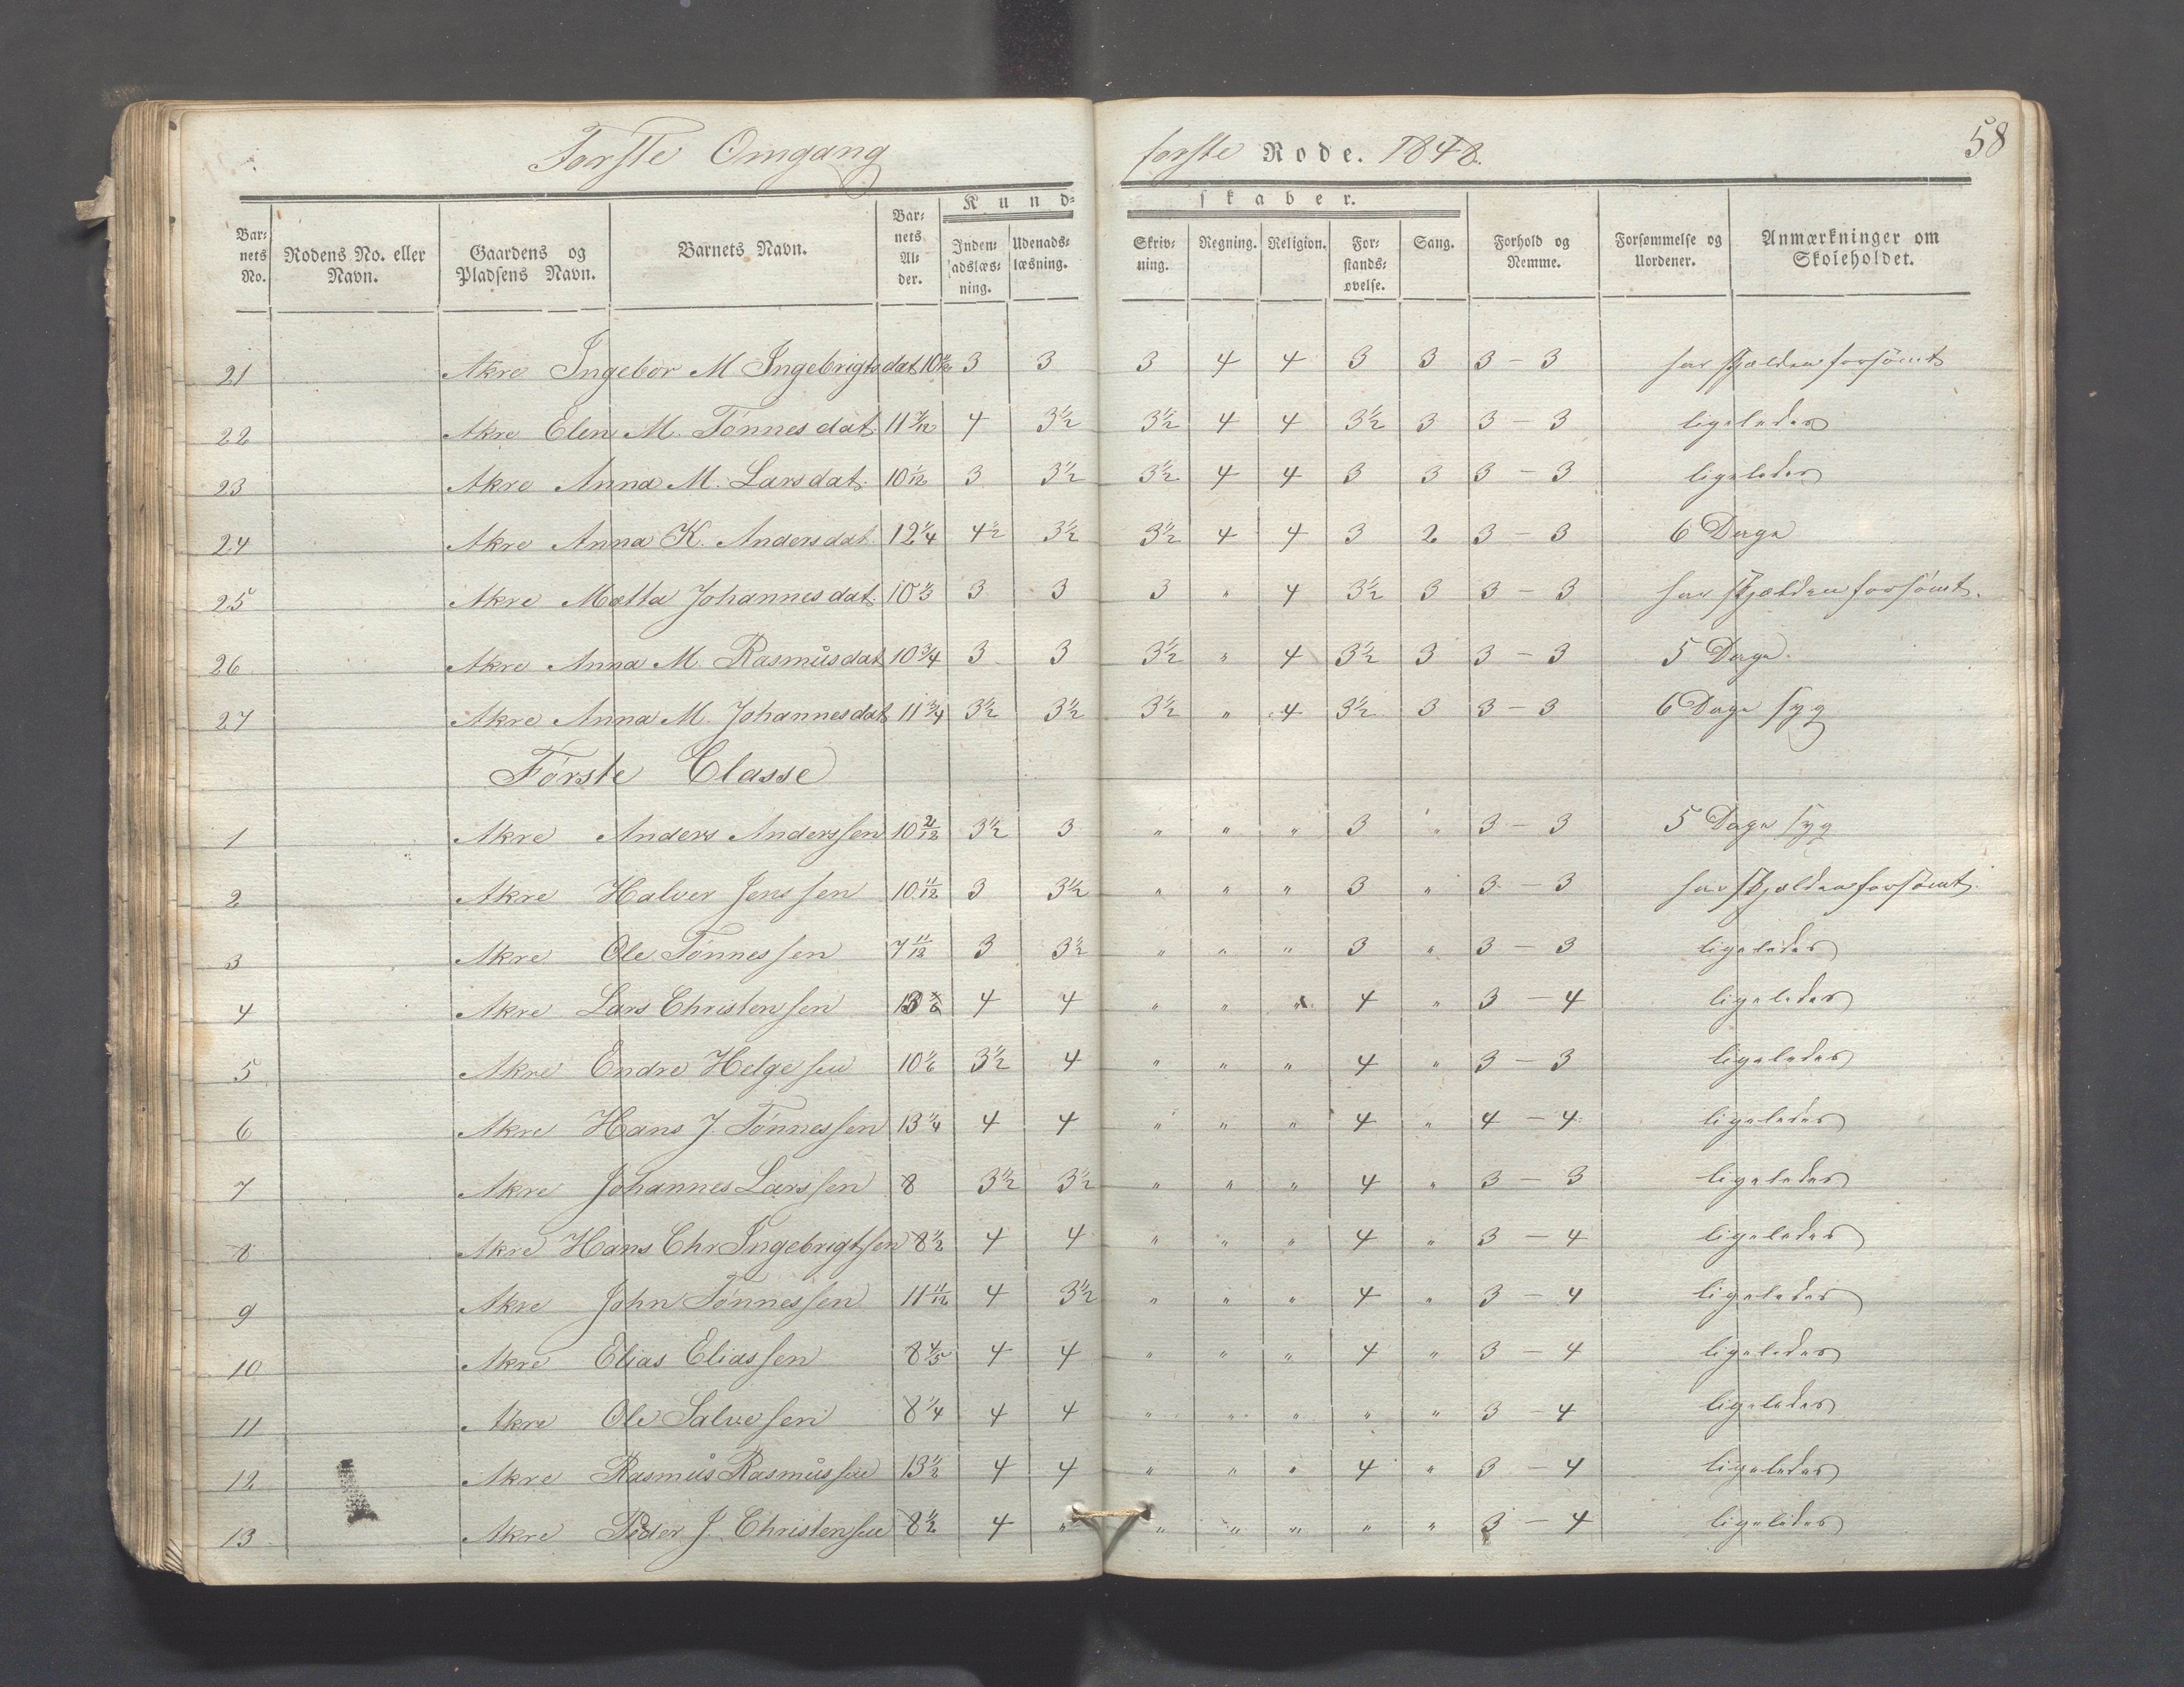 Forste Omgang
forste Rode. 1848.
58
Bar: nets No. | Rodens No. eller Navn. | Gaardens og Pladsens Navn. | Barnets Navn. | Bar: nets Al: der. | Kund: skaber. | Inden: adslæs: ning. | Udenads: læsning. | Skriv: ning. | Regning. | Religion. | For: stands: øvelse. | Sang. | Forhold og Nemme. | Forsømmelse og Uordener. | Anmærkninger om Skoleholdet.
21 Akre Ingebor M Ingebrigtsdat 3 3 3 4 4 3 3 3 – 3 har sjælden forsömt
22 Akre Elen M. Tønnesdat. 11 7/12 4 3½ 3½ 4 4 3½ 3 3 – 3 ligeledes
23 Akre Anna M. Larsdat. 10 1/12 3 3½ 3½ 4 4 3 3 3 – 3 ligeledes
24 Akre Anna K. Andersdat. 12¼ 4½ 3½ 3½ 4 4 3 2 3 – 3 6 Dage
25 Akre Mætta Johannesdat. 10⅓ 3 3 3 " 4 3½ 3 3 – 3 har sjælden forsömt.
26 Akre Anna M. Rasmusdat 10¾ 3 3 3½ " 4 3½ 3 3 – 3 5 Dage.
27 Akre Anna M. Johannesdat 11¾ 3½ 3½ 3½ " 4 3½ 3 3 – 3 6 Dage syg
Første Classe
1 Akre Anders Anderssen 10 2/12 3½ 3 " " " 3 " 3 – 3 5 Dage syg
2 Akre Halver Jenssen 10 11/12 3 3½ " " " 3 " 3 – 3 har sjælden forsömt.
3 Akre Ole Tønnessen 7 11/12 3 3½ " " " 3 " 3 – 3 ligeledes
4 Akre Lars Christensen 4 4 " " " 4 " 3 – 4 ligeledes
5 Akre Endre Helgesen 10 1/6 3½ 4 " " " 4 " 3 – 3 ligeledes
6 Akre Hans J. Tønnessen 13¼ 4 4 " " " 4 " 4 – 4 ligeledes
7 Akre Johannes Larssen 8 3½ 3½ " " " 4 " 3 – 3 ligeledes
8 Akre Hans Chr Ingebrigtsen 8½ 4 4 " " " 4 " 3 – 4 ligeledes
9 Akre John Tønnessen 11 11/12 4 3½ " " " 4 " 3 – 4 ligeledes
10 Akre Elias Eliassen 8 4/5 4 4 " " " 4 " 3 – 4 ligeledes
11 Akre Ole Salvesen 8¼ 4 4 " " " " " 3 – 4 ligeledes
12 Akre Rasmus Rasmussen 13½ 4 4 " " " 4 " 3 – 4 ligeledes
13 Akre Peder J. Christensen 8½ 4 " " " " " " 3 – 4 ligeledes